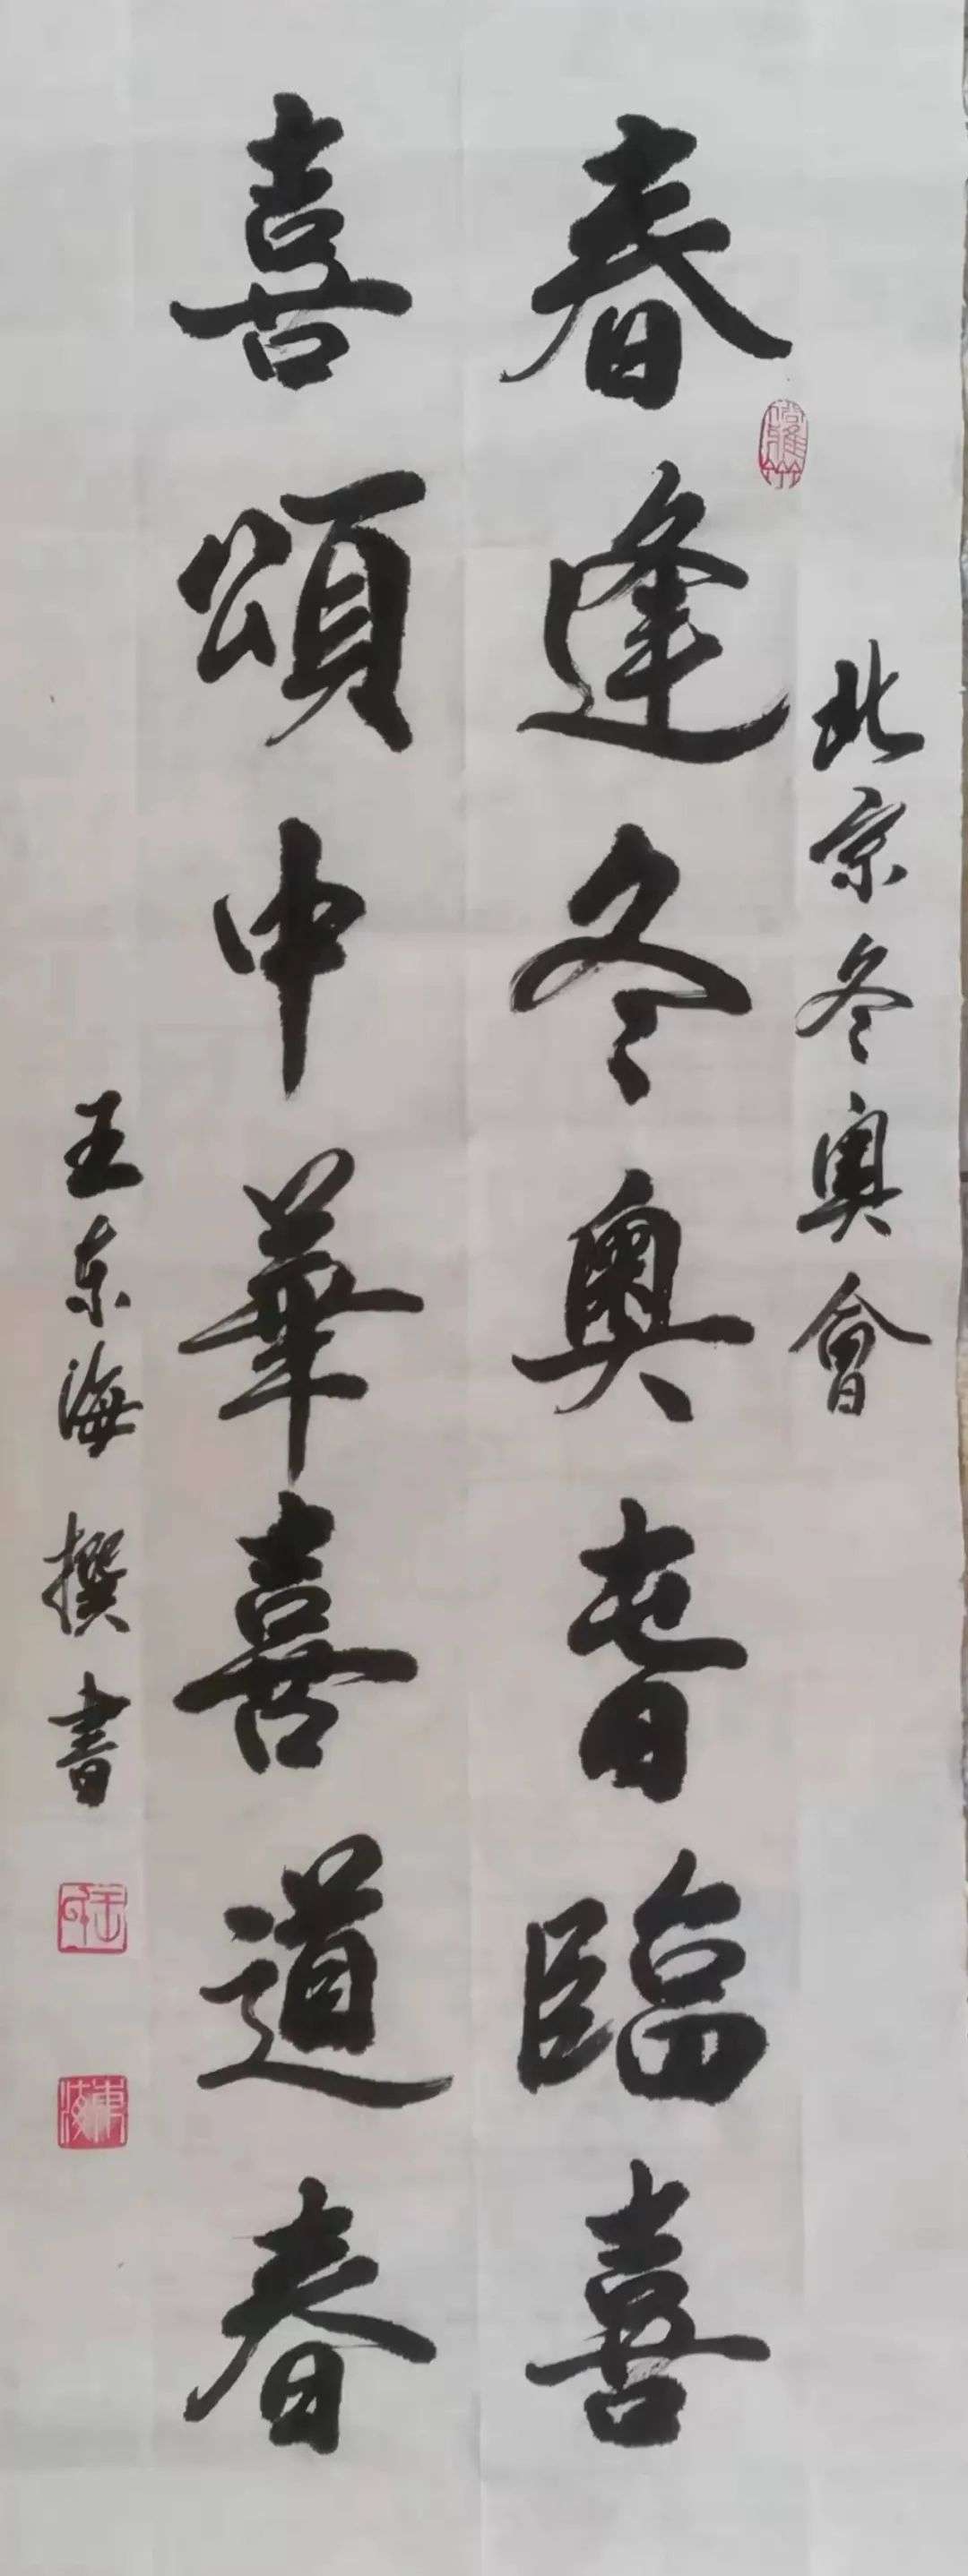 北京冬奥會
春逢冬奥春臨喜
喜頌中華喜道春
王东海撰書